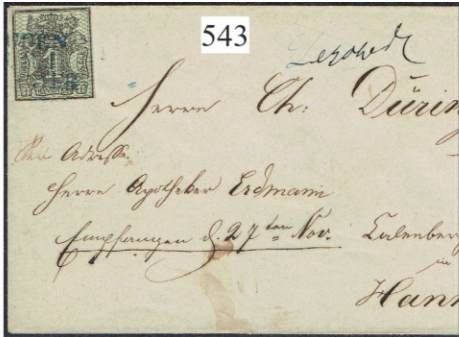 543
Herrn Ch: Dürin
Adresse
Herrn Apotheker Erdmann
Empfangen d. 27ten Nov. Calenberg
in
Hann